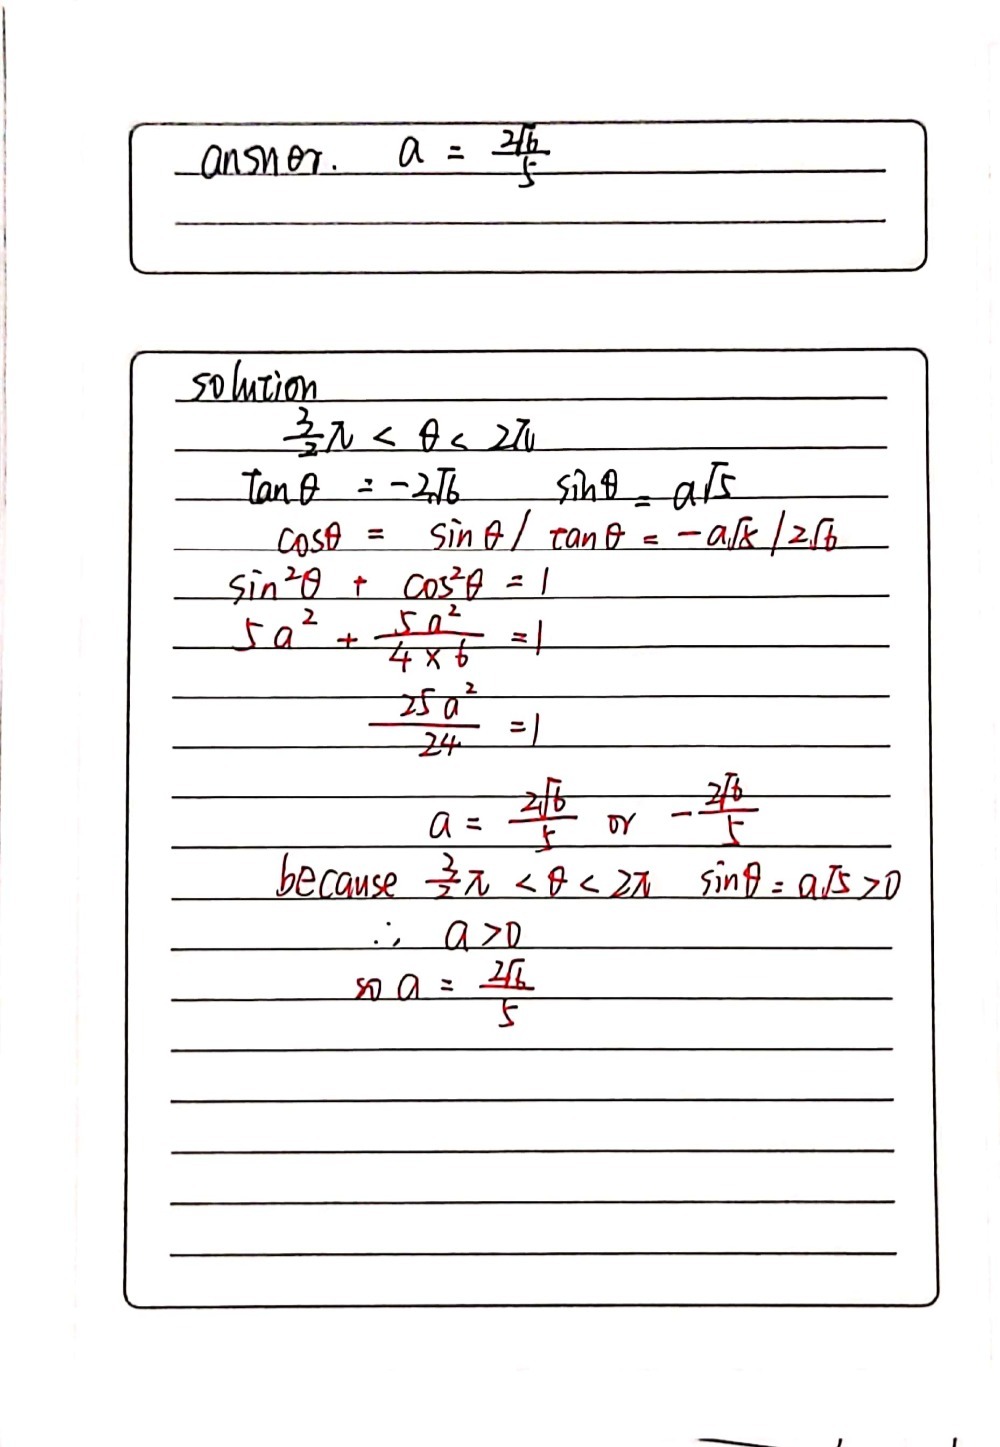 answer. a = 2√6/5
solution
3/2 π < θ < 2π
tanθ = -2√6 sinθ = a√5
cosθ = sinθ / tanθ = -a√5 / 2√6
sin²θ + cos²θ = 1
5a² + 5a²/(4×6) = 1
25a²/24 = 1
a = 2√6/5 or -2√6/5
because 3/2 π < θ < 2π sinθ = a√5 > 0
∴ a > 0
so a = 2√6/5